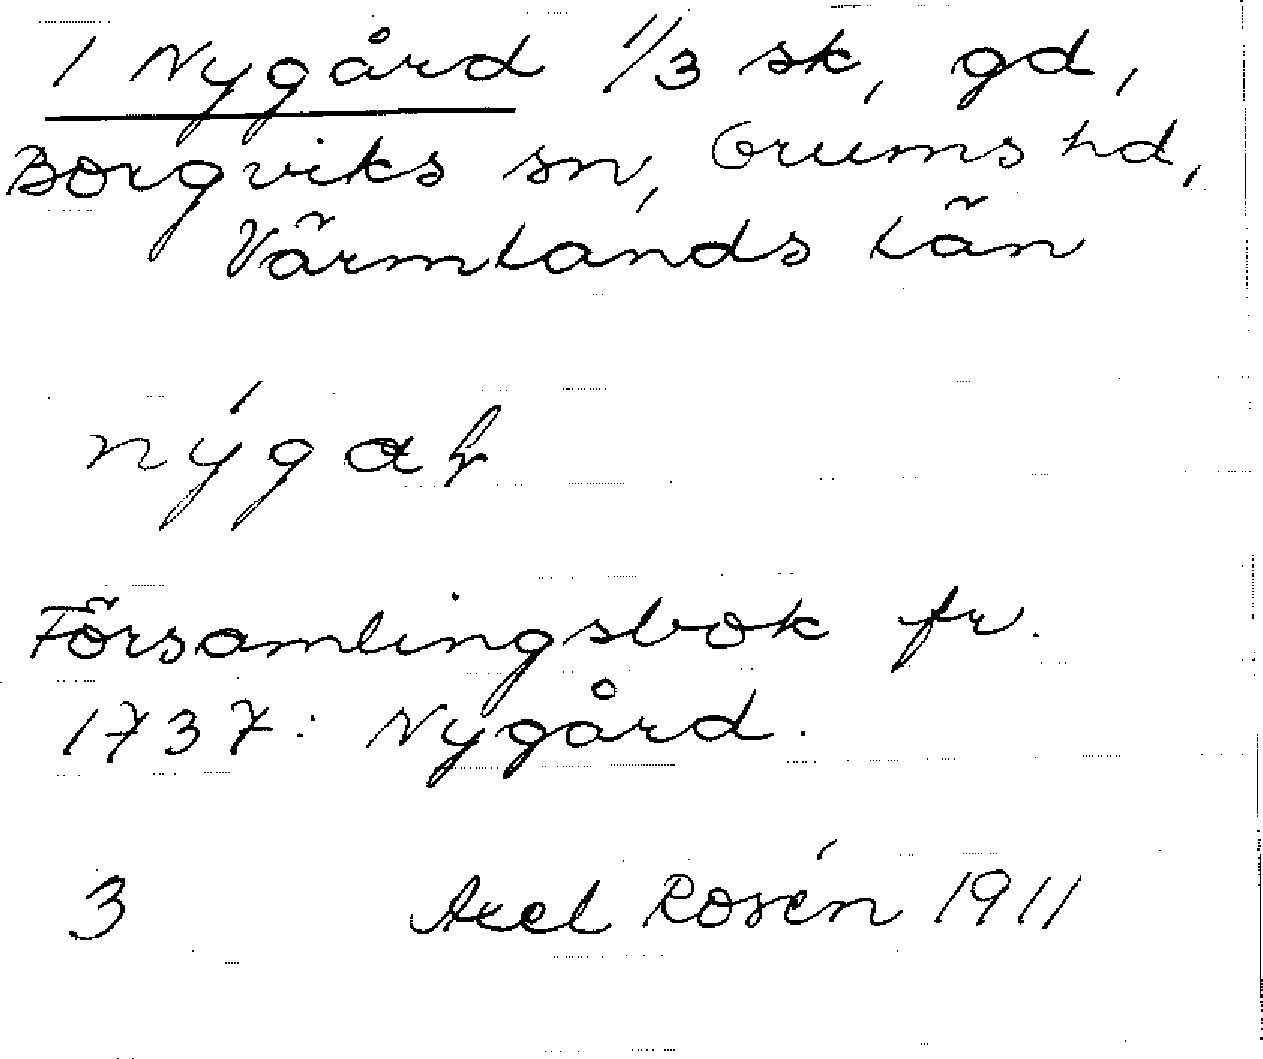 1 Nygård 1/3 sk, gd,
Borgviks sn, Grums hd,
Värmlands län
Församlingsbok fr.
1737: Nygård.
3 Axel Rosén 1911